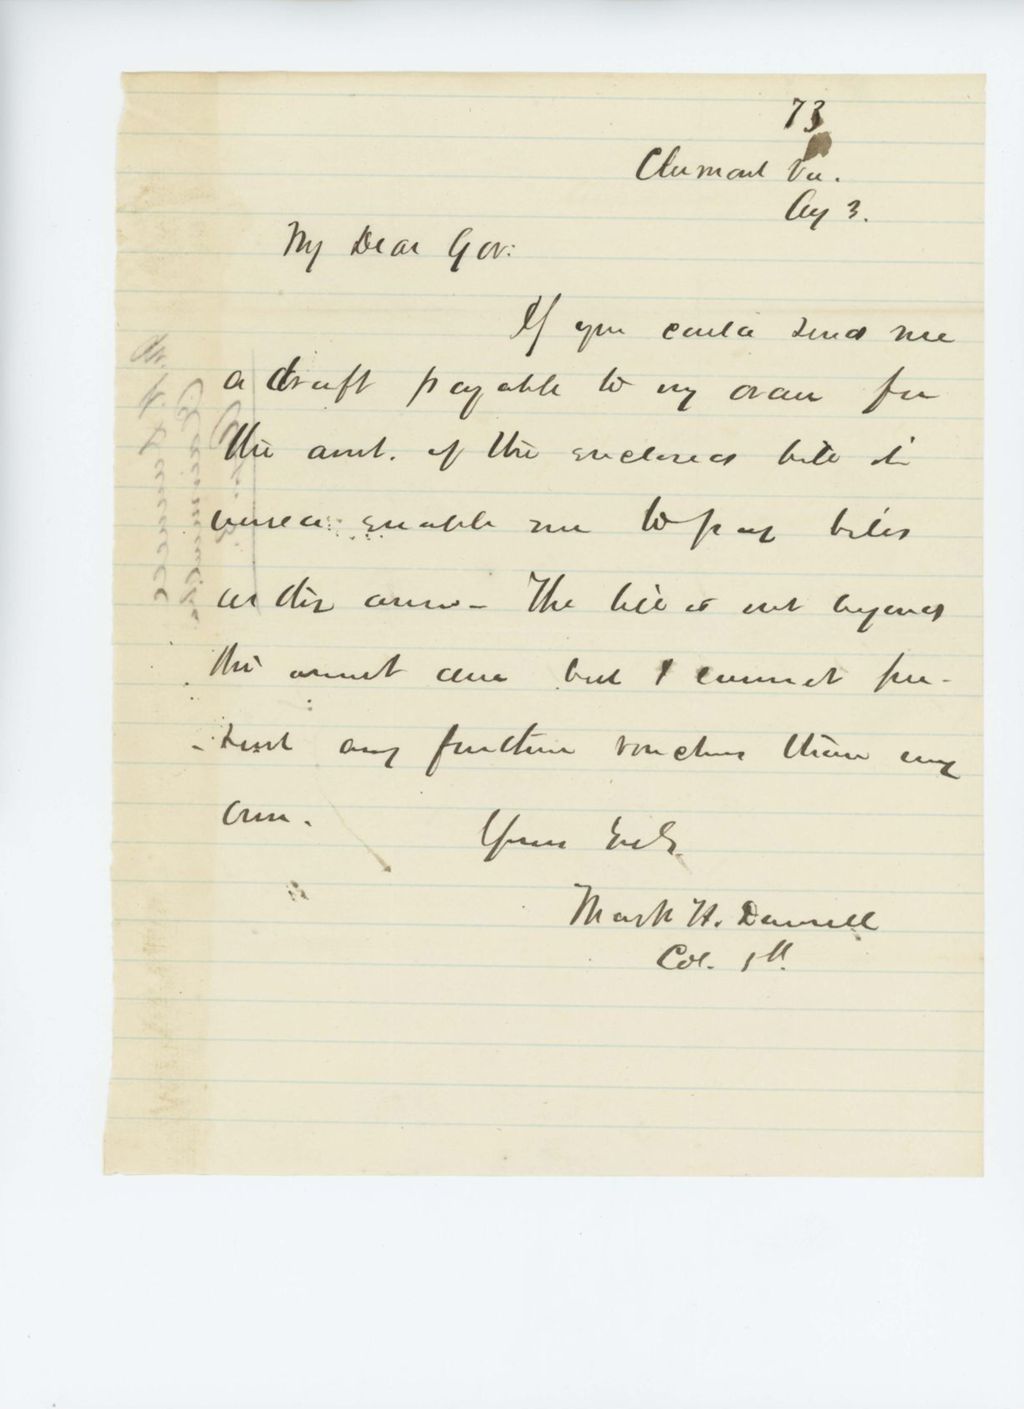 73
Clermont Va.
Aug 3.
My Dear Gov:
If you could send me
a draft payable to my order for
the amt. of the enclosed bill it
would enable me to pay bills
as they
The bill is not beyond
the amt due but I cannot pre-
-sent any further vouchers than my
own.
Yours
Mark H. Dunnell
Col. 5th.